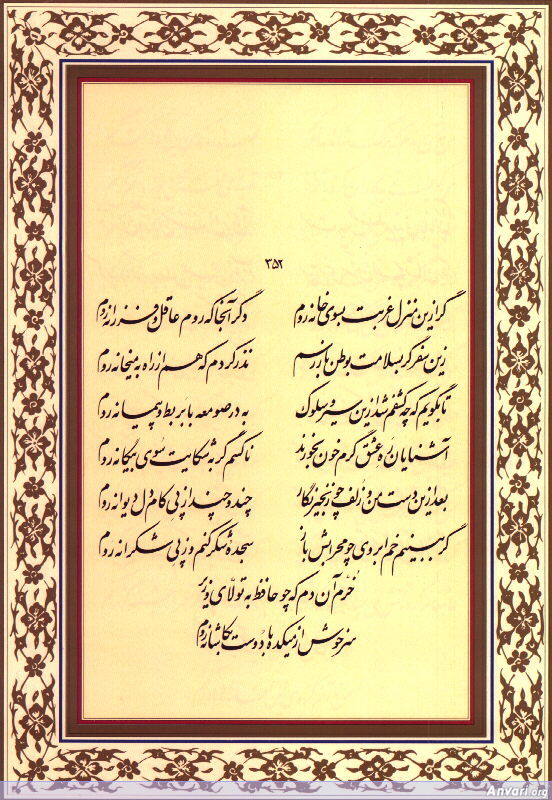 ۳۵۲
گر ازین منزل غربت بسوی خانه روم دگر آنجا که روم عاقل و فرزانه روم
زین سفر گر بسلامت بوطن باز رسم نذر کردم که هم از راه به میخانه روم
تا بگویم که چه کشفم شد ازین سیر و سلوک به در صومعه با بربط و پیمانه روم
آشنایان ره عشق گرم خون بخورند ناکسم گر به شکایت سوی بیگانه روم
بعد ازین دست من و زلف چو زنجیر نگار چند و چند از پی کام دل دیوانه روم
گر ببینم خم ابروی چو محرابش باز سجده شکر کنم وز پی شکرانه روم
خرّم آن دم که چو حافظ به تولّای وزیر
سرخوش از میکده با دوست بکاشانه روم
Anvari.org